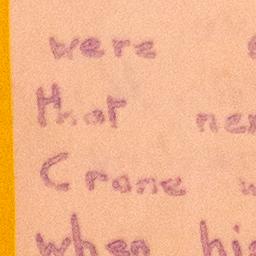 were
that nex
Crane
when hi